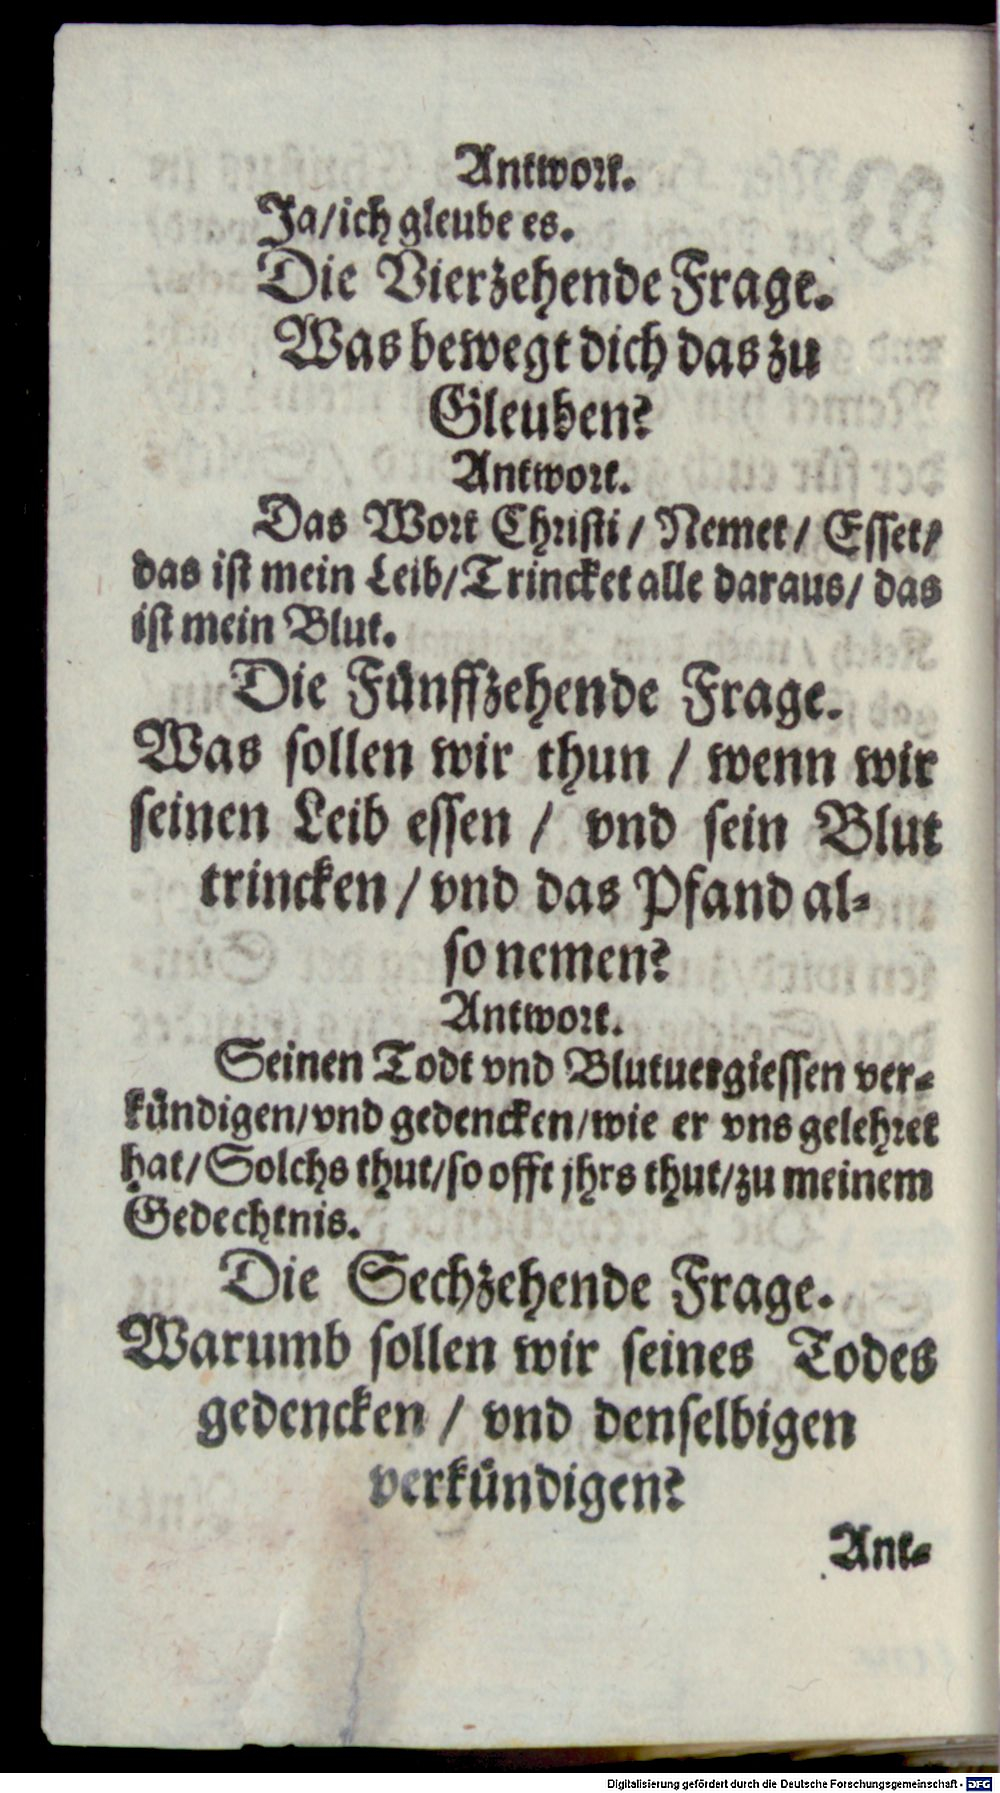 Antwort.
Ja/ich gleube es.
Die Vierzehende Frage.
Was bewegt dich das zu
Gleuben?
Antwort.
Das Wort Christi / Nemet / Esset/
das ist mein Leib/Trincket alle daraus/ das
ist mein Blut.
Die Fünffzehende Frage.
Was sollen wir thun / wenn wir
seinen Leib essen / vnd sein Blut
trincken / vnd das Pfand al-
so nemen?
Antwort.
Seinen Todt vnd Blutuergiessen ver-
kündigen/vnd gedencken/wie er vns gelehret
hat/Solchs thut/so offt jhrs thut/zu meinem
Gedechtnis.
Die Sechzehende Frage.
Warumb sollen wir seines Todes
gedencken / vnd denselbigen
verkündigen?
Ant-
Digitalisierung gefördert durch die Deutsche Forschungsgemeinschaft - DFG